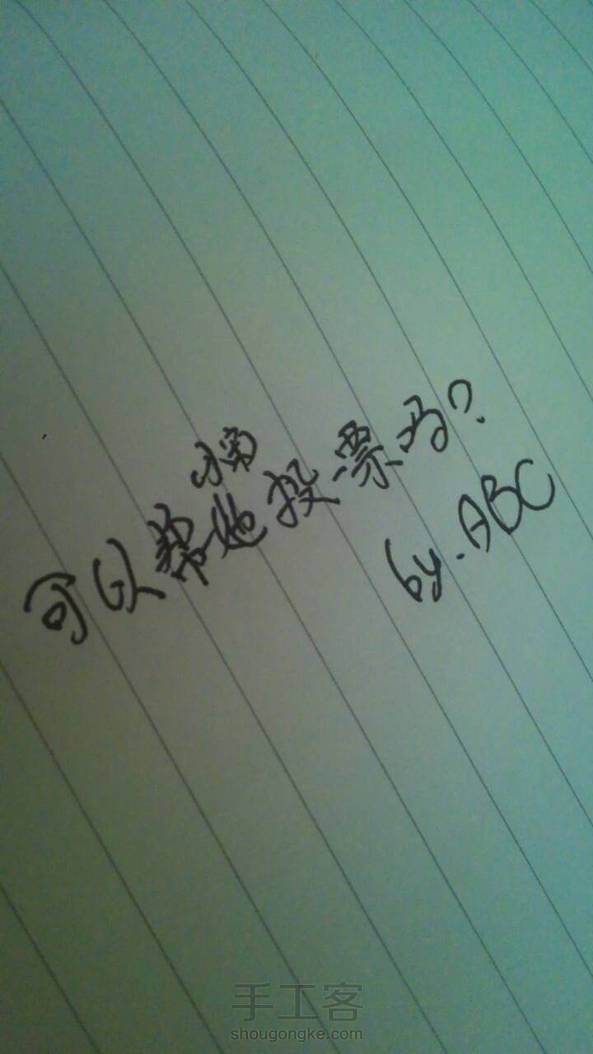 可以帮她投票吗?
by.ABC
手工客
shougongke.com